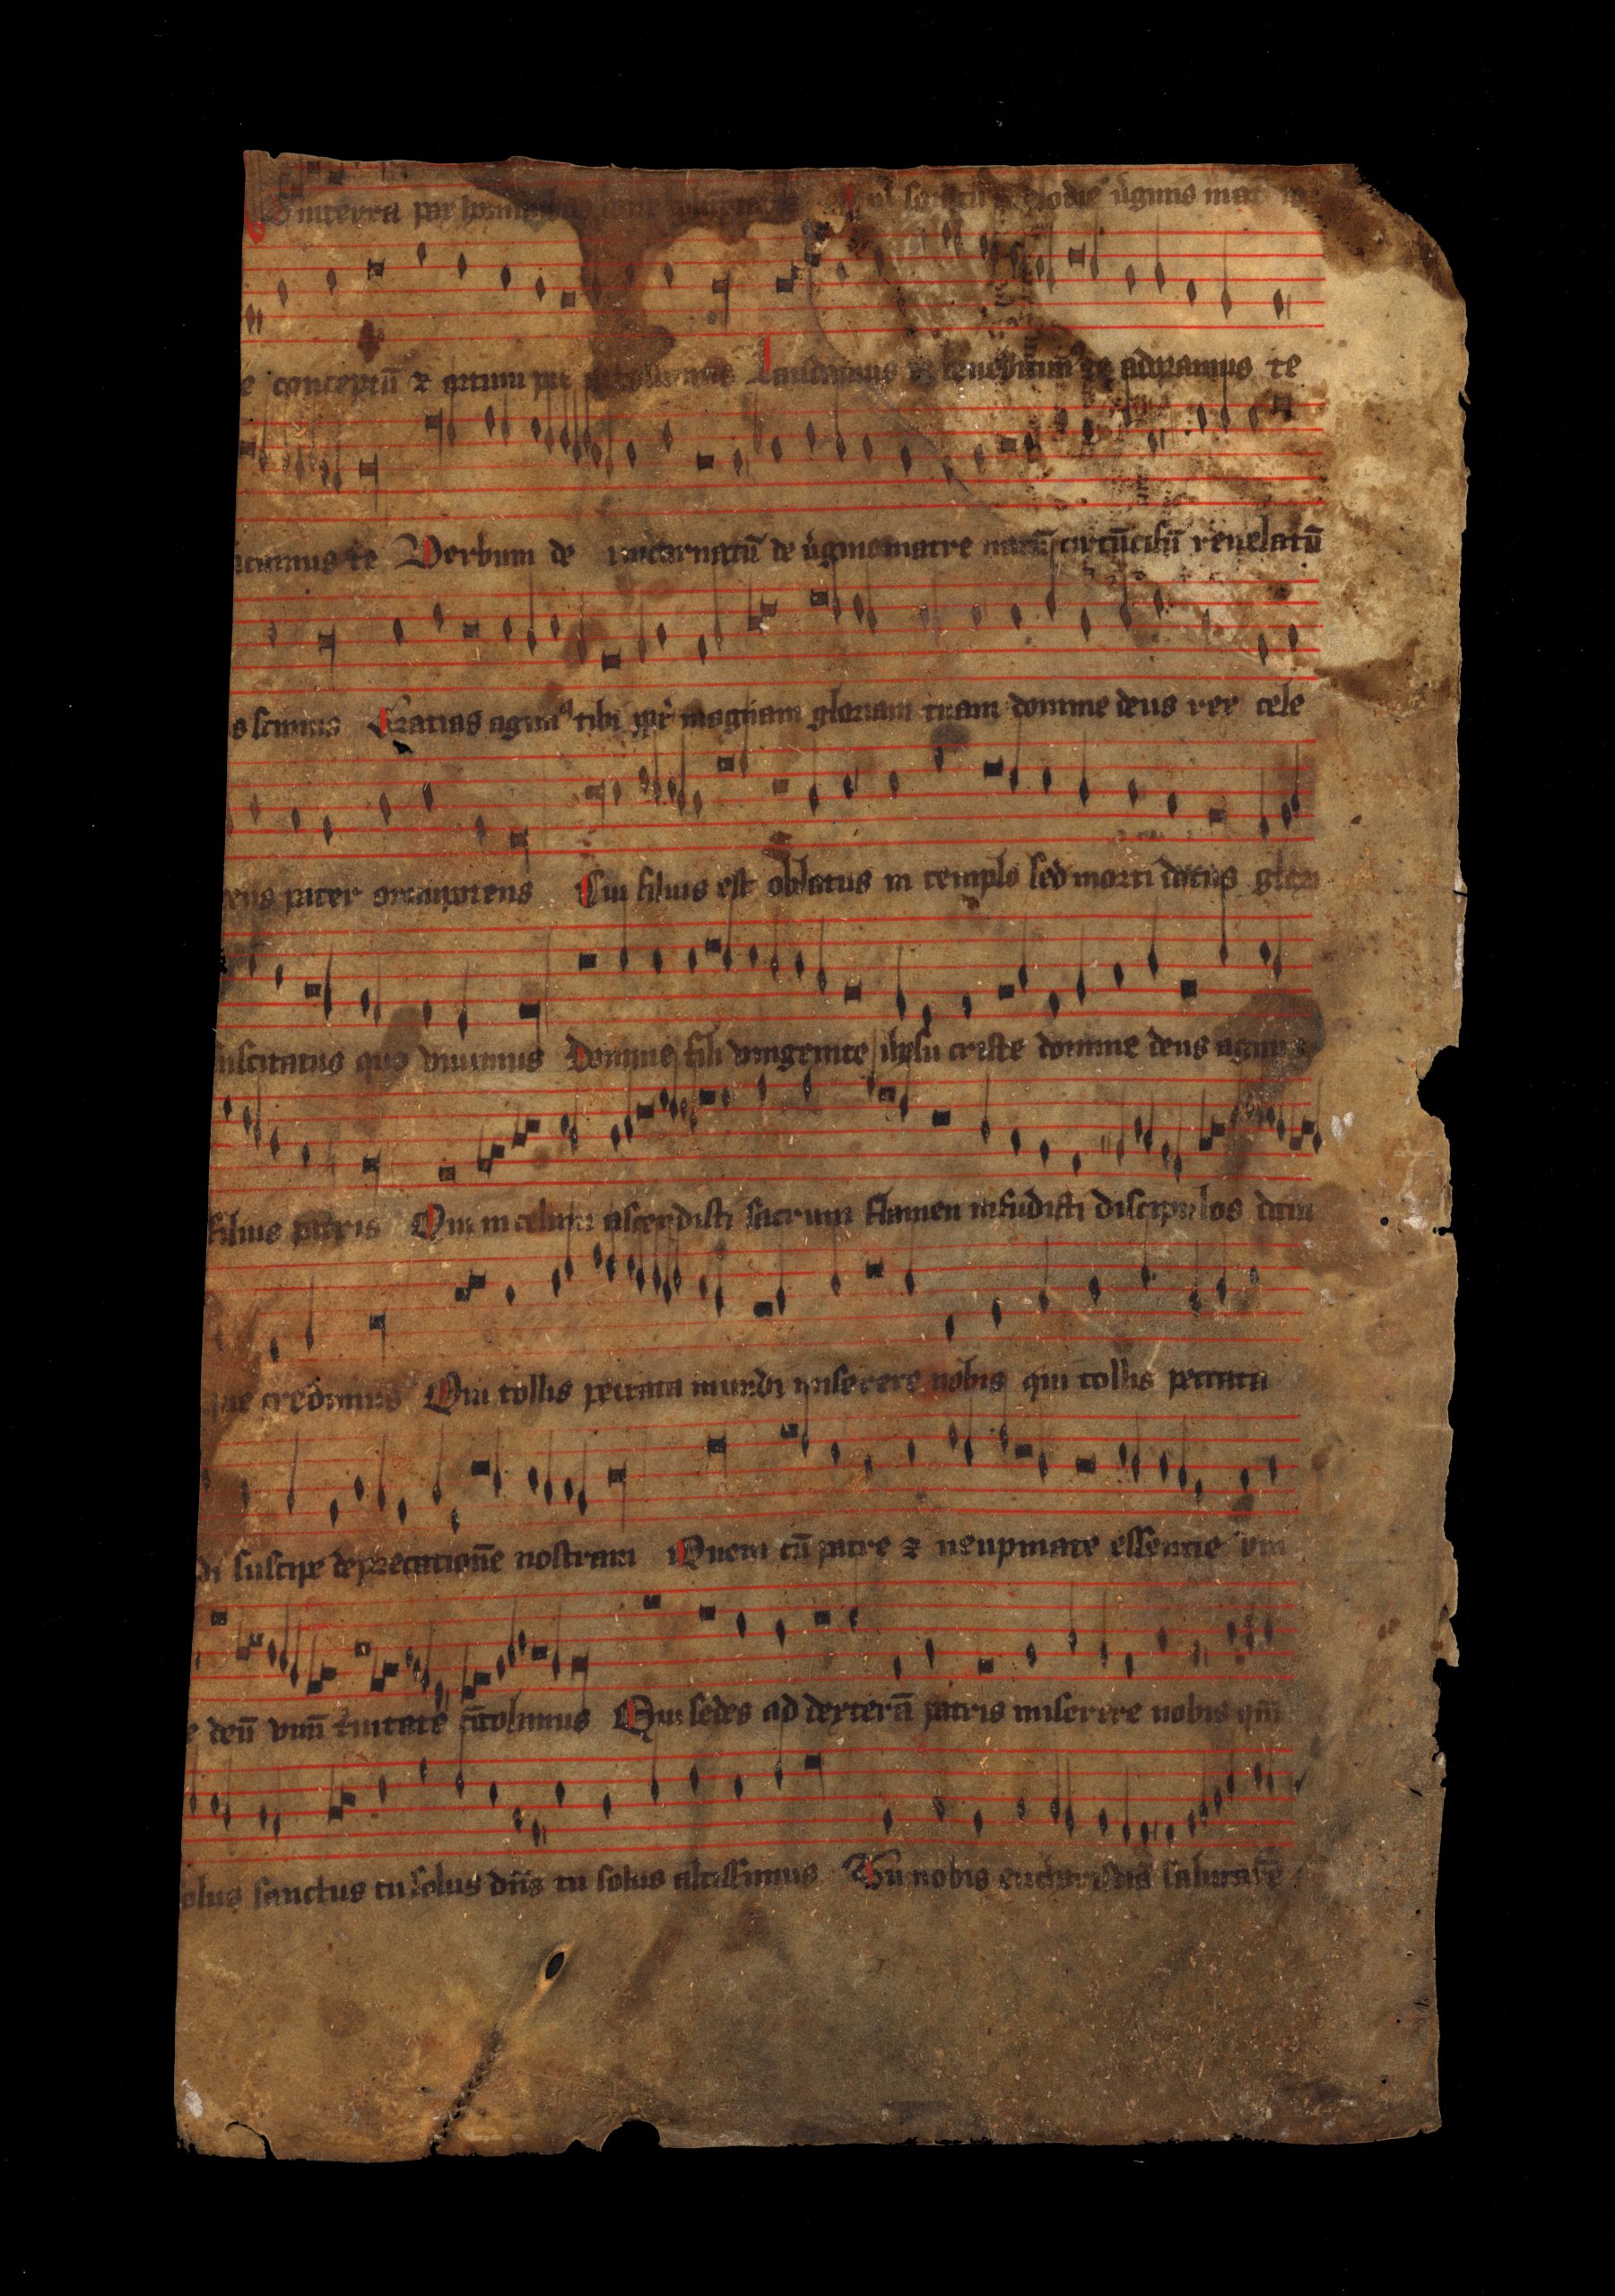 in terra pax hominibus uirginis mat
e conceptū ⁊ ortum Laudamus te adoramus te
icamus te Verbum de incarnatū de ûgine matre natū circūcisū reuelatū
s scimus Gratias agim⁹ tibi ꝓpt̉ magnam gloriam tuam domine deus rex cele
eus pater omnipotens Cui filius est oblatus in templo sed morti datus glori
uscitatus quo viuimus Domine fili vnigenite ihesu criste domine deus agnus
filius patris Qui in celum ascendisti sacrum flamen infudisti discipulos dum
que credimus Qui tollis peccata mundi miserere nobis qui tollis peccata
di suscipe deprecationē nostram Quem cū patre ⁊ neupmate essentie vni
e deū vnū t̉nitate cū colimus Qui sedes ad dexterā patris miserere nobis qm̄
olus sanctus tu solus dn̄s tu solus altissimus Tu nobis eucharistiā salutarē